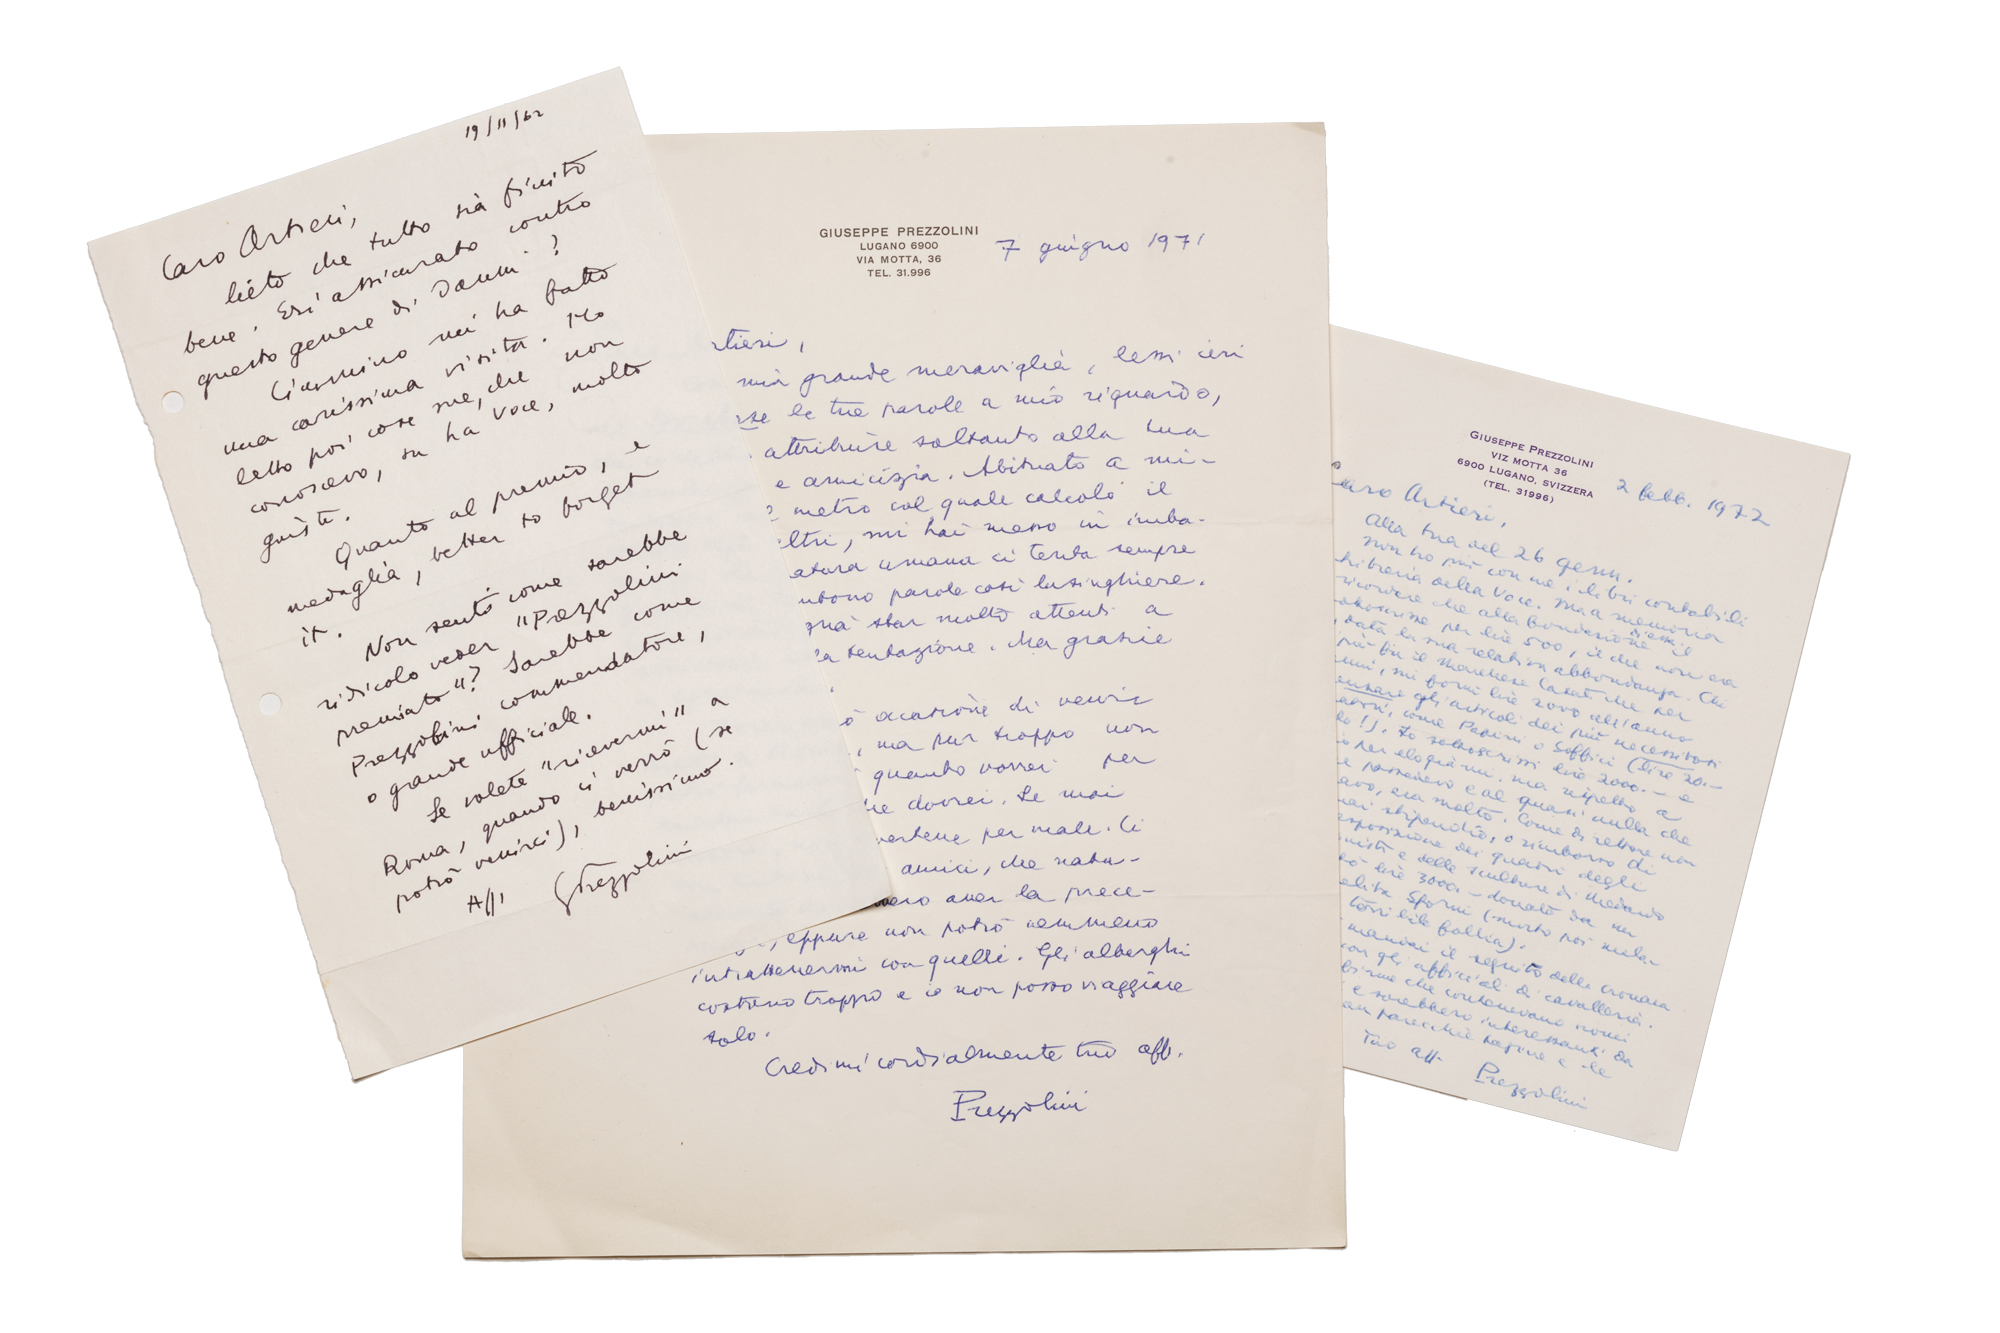 19/11/62
Caro Artieri,
lieto che tutto sia finito
bene. Eri assicurato contro
questo genere di danni?
Ciarmino mi ha fatto
una carissima visita. Ho
letto poi cose sue, che non
conoscevo, su ha Voce, molto
giuste.
Quanto al premio, e
medaglia, better to forget
it.
Non senti come sarebbe
ridicolo veder "Prezzolini
premiato"? Sarebbe come
Prezzolini commendatore,
o grande ufficiale.
Se volete "ricevermi" a
Roma, quando ci verrò (se
potrò venirci), benissimo.
Aff
GPrezzolini
GIUSEPPE PREZZOLINI
LUGANO 6900
VIA MOTTA, 36
TEL. 31.996
7 giugno 1971
rtieri,
mia grande meraviglia, lessi ieri
le tue parole a mio riguardo,
attribuire soltanto alla tua
e amicizia. Abituato a mi-
metro col quale calcolo il
ltri, mi hai messo in imba-
atura umana ci tenta sempre
parole così lusinghiere.
star molto attenti a
tentazione. Ma grazie
occasione di venir
, ma pur troppo non
quanto vorrei per
dovrei. Se mai
per male. Ci
amici, che natu-
aver la prece-
, eppure non potrò nemmeno
intrattenermi con quelli. Gli alberghi
costano troppo e io non posso viaggiare
solo.
Credimi cordialmente tuo aff.
Prezzolini
GIUSEPPE PREZZOLINI
VIZ MOTTA 36
6900 LUGANO, SVIZZERA
(TEL. 31996)
2 febb. 1972
Caro Artieri,
Alla tua del 26 genn.
non ho più con me i libri contabili
libreria della Voce. Ma a memoria
ricordare che alla fondazione il
per lire 500, il che non era
data la sua relativa abbondanza. Chi
più fu il Marchese Casati che per
mi fornì lire 2000 all'anno
gli articoli dei più necessitosi
come Papini o Soffici (lire 20.-
!). Io sottoscrissi lire 2000.- e
per elogiarmi, ma rispetto a
possedevo e al quasi nulla che
era molto. Come direttore non
stipendio, o rimborso di
esposizione dei quadri degli
e delle sculture di Medardo
lire 3000.- donato da un
Sforni (morto poi nella
terribile follia).
il seguito della cronaca
con gli ufficiali di cavalleria.
che contenevano nomi
e sarebbero interessanti da
parecchie pagine e le
Tuo aff.
Prezzolini